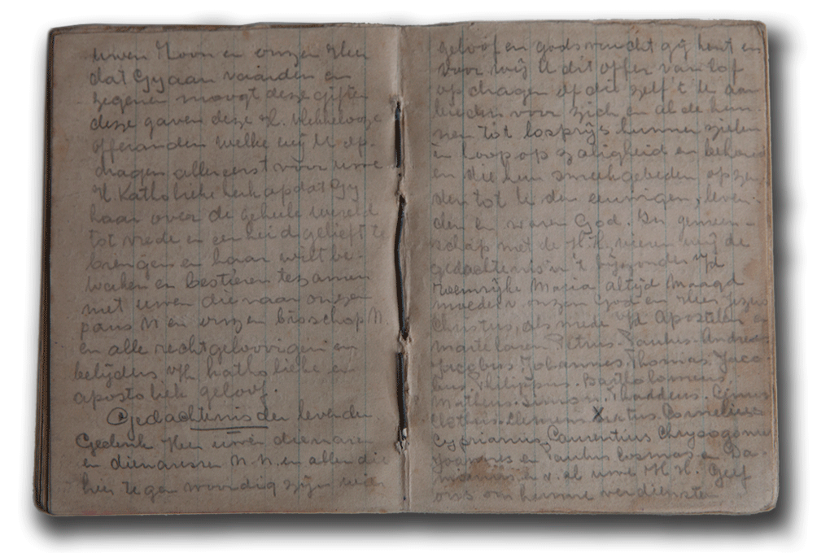 uwen Zoon en onzen Heer
dat Gy aan vaarden en
zegenen moogt deze giften
deze gaven deze H. Vlekkelooze
offeranden welke wij U op-
dragen allereerst voor uwe
H Katholieke kerk opdat Gy
haar over de geheele wereld
tot vrede en eenheid gelieft te
brengen en haar wilt be-
waken en bestieren tezamen
met uwen dienaar onzen
paus N en onzen bisschop N
en alle rechtgeloovigen en
belijders v/h katholieke en
apostoliek geloof.
Gedachtenis der levenden
Gedenk Heer uwen dienaren
en dienaressen N. N. en allen die
hier tegenwoordig zijn wier
geloof en godsvrucht gij kent en
voor wij U dit offer van lof
op dragen of die zelf 't te aan
bieden voor zich en al de hun-
nen tot losprijs hunner zielen
in hoop op zaligheid en behoud
en die hun smeekgebeden opzen
den tot te den eeuwigen, leven-
den en waren God. In gemeen-
schap met de H.H. vieren wij de
gedachtenis en 't bijzonder v/d
roemrijke Maria altijd Maagd
moeder v. onzen God en Heer Jezus
Christus, als mede v/d Apostelen en
martelaren Petrus. Paulus. Andreas
Jacobus Johannes. Thomas. Jaco-
bus Philippus. Bartholomeus
Matheus. Simon. Thaddeus. Linus
Cletus. Clemens Xixtus. Cornelius
Cyprianus. Laurentius Chrysogonus
Joannes en Paulus Cosmas en Da-
mianus en v. al uwe H. H. Geef
ons om hunne verdiensten